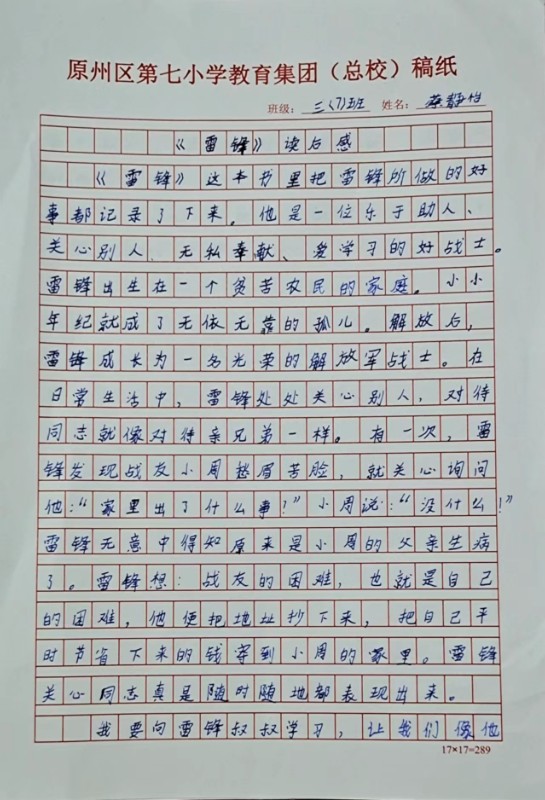 原州区第七小学教育集团（总校）稿纸
班级：三(7)班 姓名：蔡静怡
《雷锋》读后感
《雷锋》这本书里把雷锋所做的好
事都记录了下来。他是一位乐于助人、
关心别人、无私奉献、爱学习的好战士。
雷锋出生在一个贫苦农民的家庭。小小
年纪就成了无依无靠的孤儿。解放后，
雷锋成长为一名光荣的解放军战士。在
日常生活中，雷锋处处关心别人，对待
同志就像对待亲兄弟一样。有一次，雷
锋发现战友小周愁眉苦脸，就关心询问
他：“家里出了什么事！”小周说：“没什么！”
雷锋无意中得知原来是小周的父亲生病
了。雷锋想：战友的困难，也就是自己
的困难，他便把地址抄下来，把自己平
时节省下来的钱寄到小周的家里。雷锋
关心同志真是随时随地都表现出来。
我要向雷锋叔叔学习，让我们像他
17×17=289